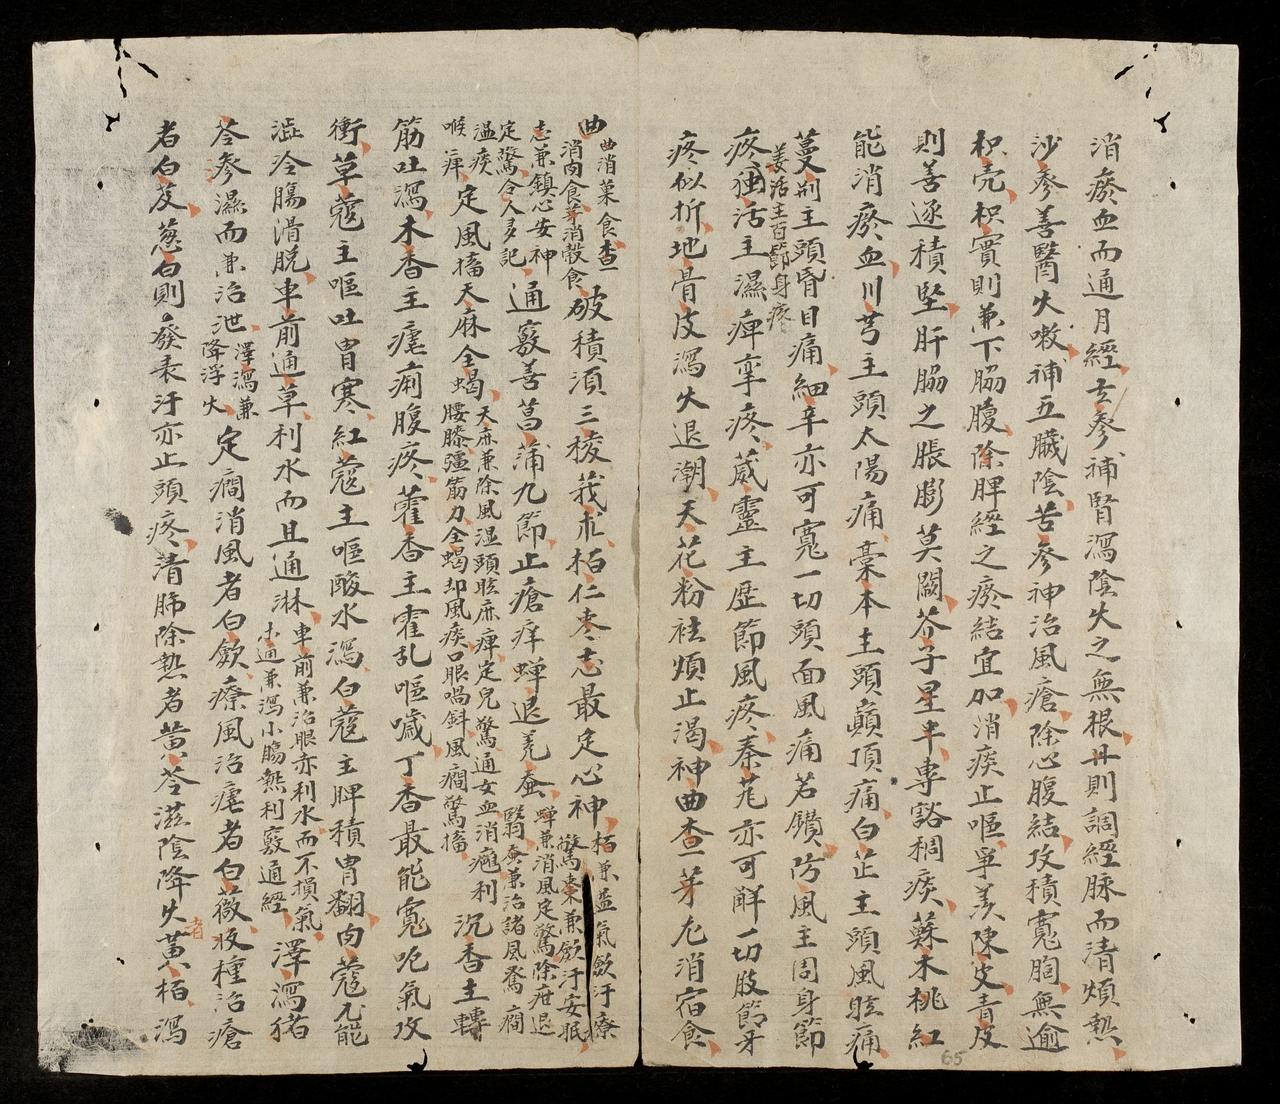 消瘀血而通月經玄參補腎瀉陰火之無根丹則調經脉而清煩熱
沙參善醫火嗽補五臟陰苦參神治風瘡除心腹結攻積寬胸無逾
枳壳枳實則兼下脇腹除脾經之瘀結宜加消痰止嘔寧羨陳皮青皮
則善逐積堅肝脇之脹膨莫闕芥子星半專豁稠痰蘇木桃紅
能消瘀血川芎主頭太陽痛藁本主頭巔頂痛白芷主頭風眩痛
蔓荊主頭昏目痛細辛亦可寬一切頭面風痛若鑽防風主周身節
疼獨活主濕痺攣疼葳靈主歴節風疼秦艽亦可解一切肢節牙
羌活主百節身疼
疼似折地骨皮瀉火退潮天花粉袪煩止渴神曲查芽尤消宿食
曲消菓食查
消肉食芽消穀食
破積須三稜莪朮栢仁枣志最定心神
栢兼益氣歛汗療
驚棗兼歛汗安眠
志兼鎮心安神
定驚令人多記
通竅善菖蒲九節止瘡痒蟬退羌蚕
蟬兼消風定驚除疳退
翳蚕兼治諸風瘈癇
温痰
喉痺
定風搐天麻全蝎
天麻兼除風湿頭眩麻痺定兒驚通女血消癰利
腰膝彊筋力全蝎却風痰口眼喎斜風癇驚搐
沉香主轉
筋吐瀉木香主瘧痢腹疼藿香主霍乱嘔噦丁香最能寬呃氣攻
衝草蔻主嘔吐胃寒紅蔻主嘔酸水瀉白蔻主脾積胃翻肉蔻尤能
澁冷腸滑脫車前通草利水而且通淋
車前兼治眼亦利水而不損氣
木通兼瀉小腸熱利竅通經
澤瀉猪
苓參濕而兼治泄
澤瀉兼
降浮火
定癇消風者白歛療風治瘧者白薇收種治瘡
者白芨葱白則發表汗亦止頭疼清肺除熱者黄芩滋陰降火黄栢瀉
者
65